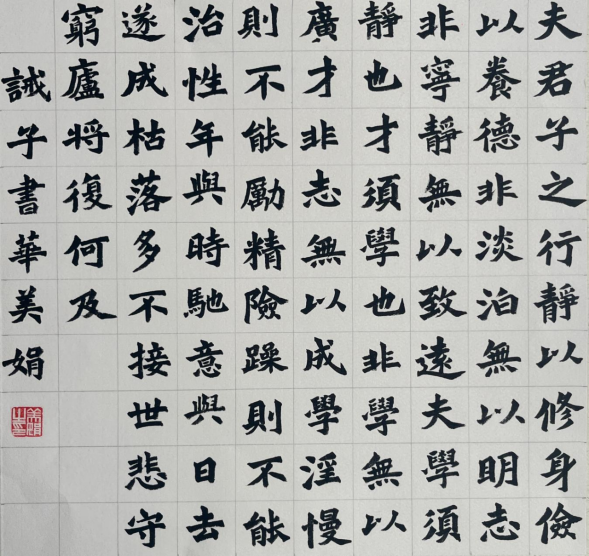 夫君子之行靜以修身儉
以養德非淡泊無以明志
非寧靜無以致遠夫學須
靜也才須學也非學無以
廣才非志無以成學淫慢
則不能勵精險躁則不能
治性年與時馳意與日去
遂成枯落多不接世悲守
窮廬將復何及
誡子書華美娟